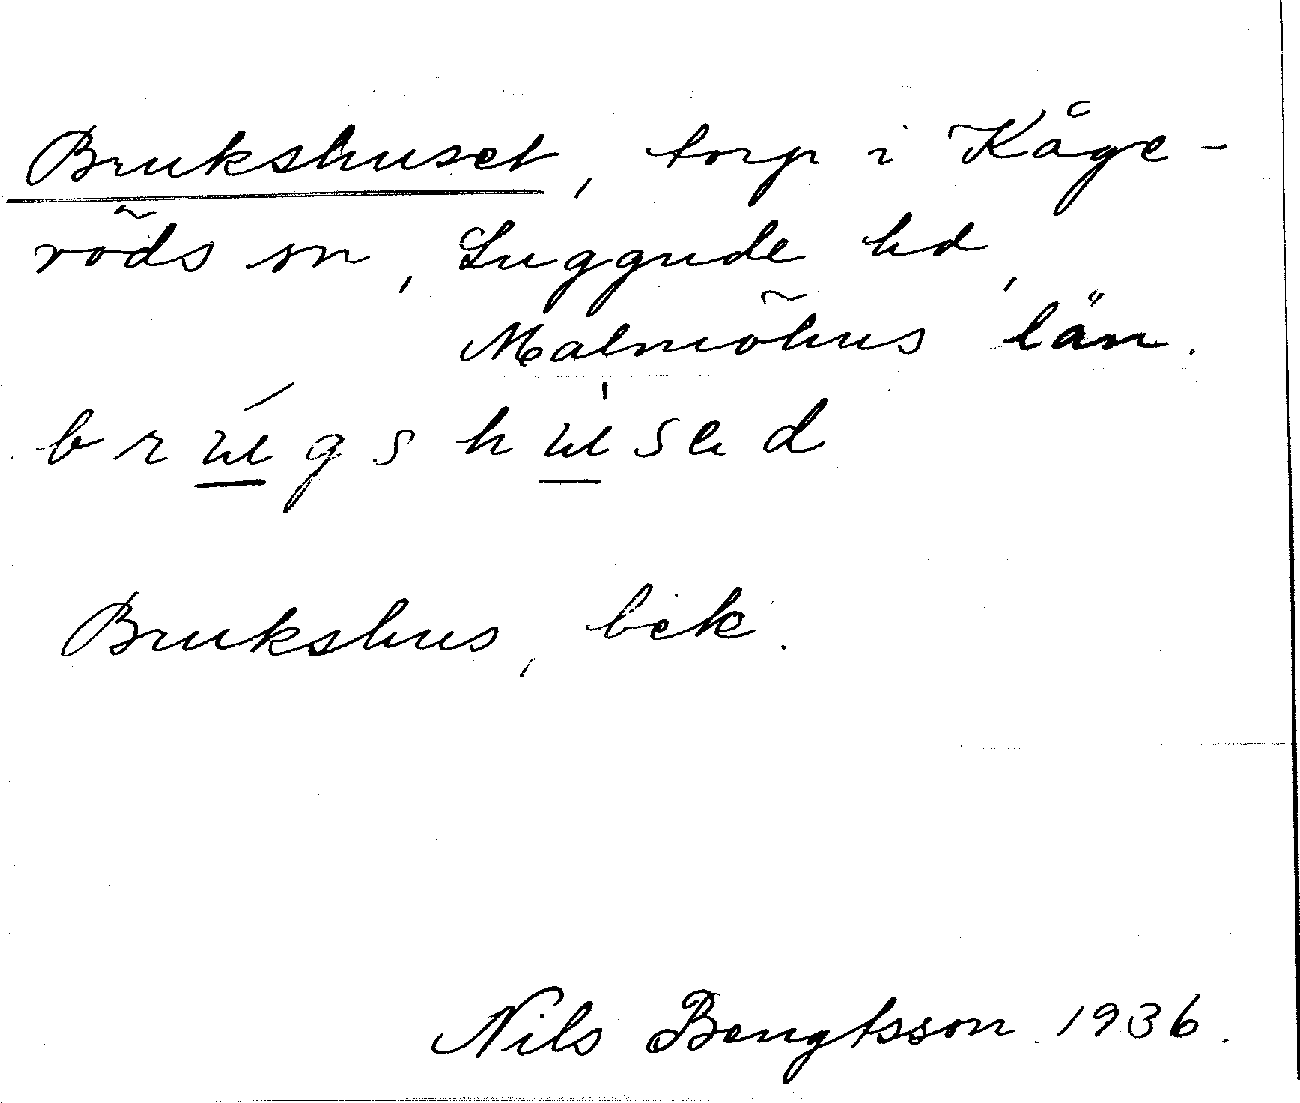 Brukshuset, torp i Kåge-
röds sn, Luggude hd,
Malmöhus län.
brúgshúsad
Brukshus, bek.
Nils Bengtsson 1936.